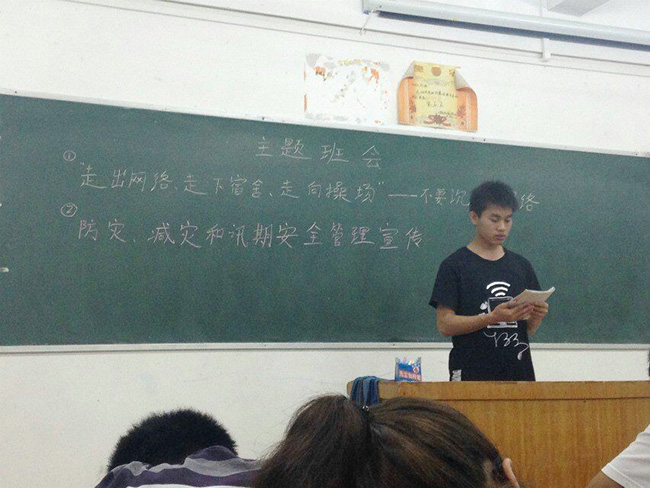 主题班会
① "走出网络、走下宿舍、走向操场"——不要沉 络
② 防灾、减灾和汛期安全管理宣传